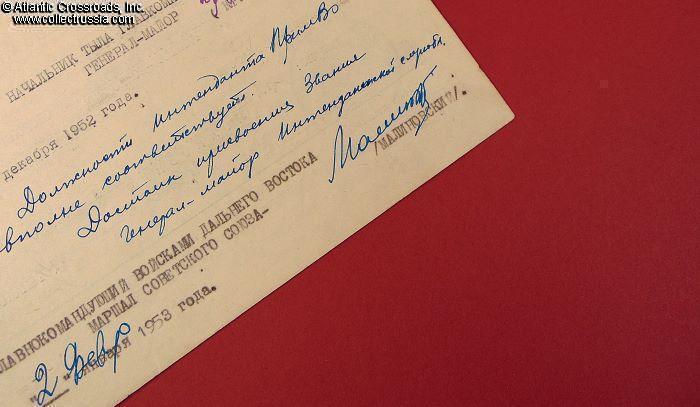 © Atlantic Crossroads, Inc.
www.collectrussia.com
НАЧАЛЬНИК ТЫЛА ГЛАВКОМА
ГЕНЕРАЛ-МАЙОР
декабря 1952 года.
Должности Интенданта ПримВО
вполне соответствует.
Достоин присвоения звания
генерал-майор Интендантской службы.
/МАЛИНОВСКИЙ/.
ЛАВНОКОМАНДУЮЩИЙ ВОЙСКАМИ ДАЛЬНЕГО ВОСТОКА
МАРШАЛ СОВЕТСКОГО СОЮЗА-
2 февр
"__" января 1953 года.